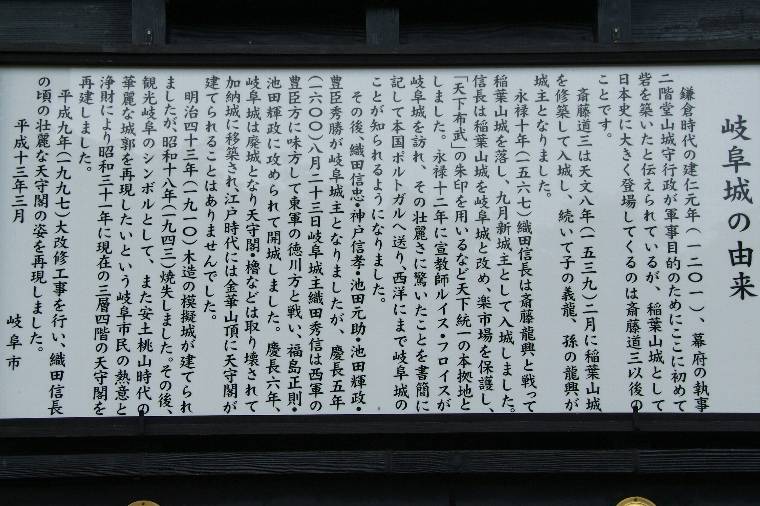 岐阜城の由来
鎌倉時代の建仁元年(一二〇一)、幕府の執事
二階堂山城守行政が軍事目的のためにここに初めて
砦を築いたと伝えられているが、稲葉山城として
日本史に大きく登場してくるのは斎藤道三以後の
ことです。
斎藤道三は天文八年(一五三九)二月に稲葉山城
を修築して入城し、続いて子の義龍、孫の龍興が
城主となりました。
永禄十年(一五六七)織田信長は斎藤龍興と戦って
稲葉山城を落し、九月新城主として入城しました。
信長は稲葉山城を岐阜城と改め、楽市場を保護し、
「天下布武」の朱印を用いるなど天下統一の本拠地と
しました。永禄十二年に宣教師ルイス・フロイスが
岐阜城を訪れ、その壮麗さに驚いたことを書簡に
記して本国ポルトガルへ送り、西洋にまで岐阜城の
ことが知られるようになりました。
その後、織田信忠・神戸信孝・池田元助・池田輝政・
豊臣秀勝が岐阜城主となりましたが、慶長五年
(一六〇〇)八月二十三日岐阜城主織田秀信は西軍の
豊臣方に味方して東軍の徳川方と戦い、福島正則・
池田輝政に攻められて開城しました。慶長六年、
岐阜城は廃城となり天守閣・櫓などは取り壊されて
加納城に移築され、江戸時代には金華山頂に天守閣が
建てられることはありませんでした。
明治四十三年(一九一〇)木造の模擬城が建てられ
ましたが、昭和十八年(一九四三)焼失しました。その後、
観光岐阜のシンボルとして、また安土桃山時代の
華麗な城郭を再現したいという岐阜市民の熱意と
浄財により、昭和三十一年に現在の三層四階の天守閣を
再建しました。
平成九年(一九九七)大改修工事を行い、織田信長
の頃の壮麗な天守閣の姿を再現しました。
平成十三年三月 岐阜市